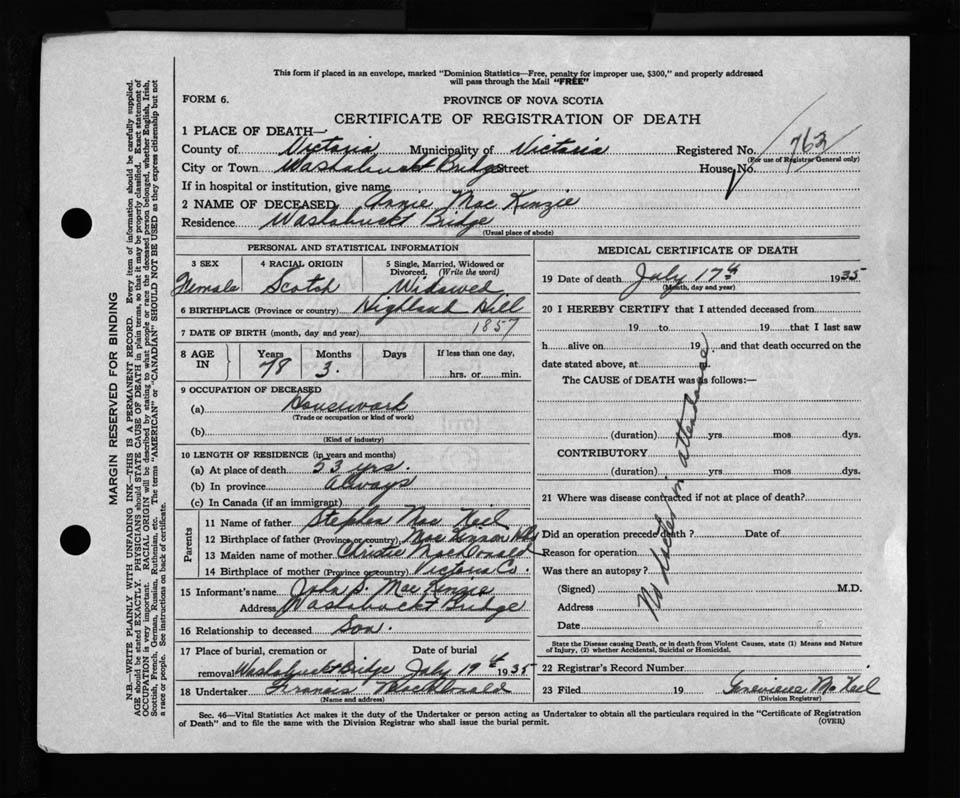 This form if placed in an envelope, marked "Dominion Statistics—Free, penalty for improper use, $300," and properly addressed
will pass through the Mail "FREE"
FORM 6.
PROVINCE OF NOVA SCOTIA
CERTIFICATE OF REGISTRATION OF DEATH
1 PLACE OF DEATH—
County of Victoria Municipality of Victoria Registered No. 763
(For use of Registrar General only)
City or Town Washabuckt Bridge Street House No.
If in hospital or institution, give name
2 NAME OF DECEASED Annie Mac Kinzie
Residence Washabuckt Bridge
(Usual place of abode)
PERSONAL AND STATISTICAL INFORMATION
3 SEX 4 RACIAL ORIGIN 5 Single, Married, Widowed or Divorced. (Write the word)
Female Scotch Widowed
6 BIRTHPLACE (Province or country) Highland Hill
7 DATE OF BIRTH (month, day and year) 1857
8 AGE IN Years Months Days If less than one day,
78 3. hrs. or min.
9 OCCUPATION OF DECEASED
(a) Housework
(Trade or occupation or kind of work)
(b)
(Kind of industry)
10 LENGTH OF RESIDENCE (in years and months)
(a) At place of death 53 yrs.
(b) In province always
(c) In Canada (if an immigrant)
Parents
11 Name of father Stephen Mac Neil
12 Birthplace of father (Province or country) Mac Kinnon Hb
13 Maiden name of mother Christie MacDonald
14 Birthplace of mother (Province or country) Victoria Co.
15 Informant's name John S. Mac Kinzie
Address Washabuckt Bridge
16 Relationship to deceased Son.
17 Place of burial, cremation or removal Date of burial
Washabuckt Bridge July 19th 1935
18 Undertaker Francis MacDonald
(Name and address)
MEDICAL CERTIFICATE OF DEATH
19 Date of death July 17th 1935
(Month, day and year)
20 I HEREBY CERTIFY that I attended deceased from
19 to 19 that I last saw
h alive on 19 , and that death occurred on the
date stated above, at
The CAUSE of DEATH was as follows:—
(duration) yrs. mos. dys.
CONTRIBUTORY
(duration) yrs. mos. dys.
21 Where was disease contracted if not at place of death?
Did an operation precede death? Date of
Reason for operation
Was there an autopsy?
(Signed) M.D.
Address
Date
No Doctor in attendance
State the Disease causing Death, or in death from Violent Causes, state (1) Means and Nature
of Injury, (2) whether Accidental, Suicidal or Homicidal.
22 Registrar's Record Number
23 Filed 19 Genevieve McNeil
(Division Registrar)
Sec. 46—Vital Statistics Act makes it the duty of the Undertaker or person acting as Undertaker to obtain all the particulars required in the "Certificate of Registration
of Death" and to file the same with the Division Registrar who shall issue the burial permit. (OVER)
MARGIN RESERVED FOR BINDING
N.B.—WRITE PLAINLY WITH UNFADING INK—THIS IS A PERMANENT RECORD. Every item of information should be carefully supplied.
AGE should be stated EXACTLY. PHYSICIANS should STATE CAUSE OF DEATH in plain terms, so that it may be properly classified. Exact statement of
OCCUPATION is very important. RACIAL ORIGIN will be described by stating to what people or race the deceased person belonged, whether English, Irish,
Scottish, French, German, Russian, Ruthenian, etc. The terms "AMERICAN" or "CANADIAN" SHOULD NOT BE USED as they express citizenship but not
a race or people. See instructions on back of certificate.